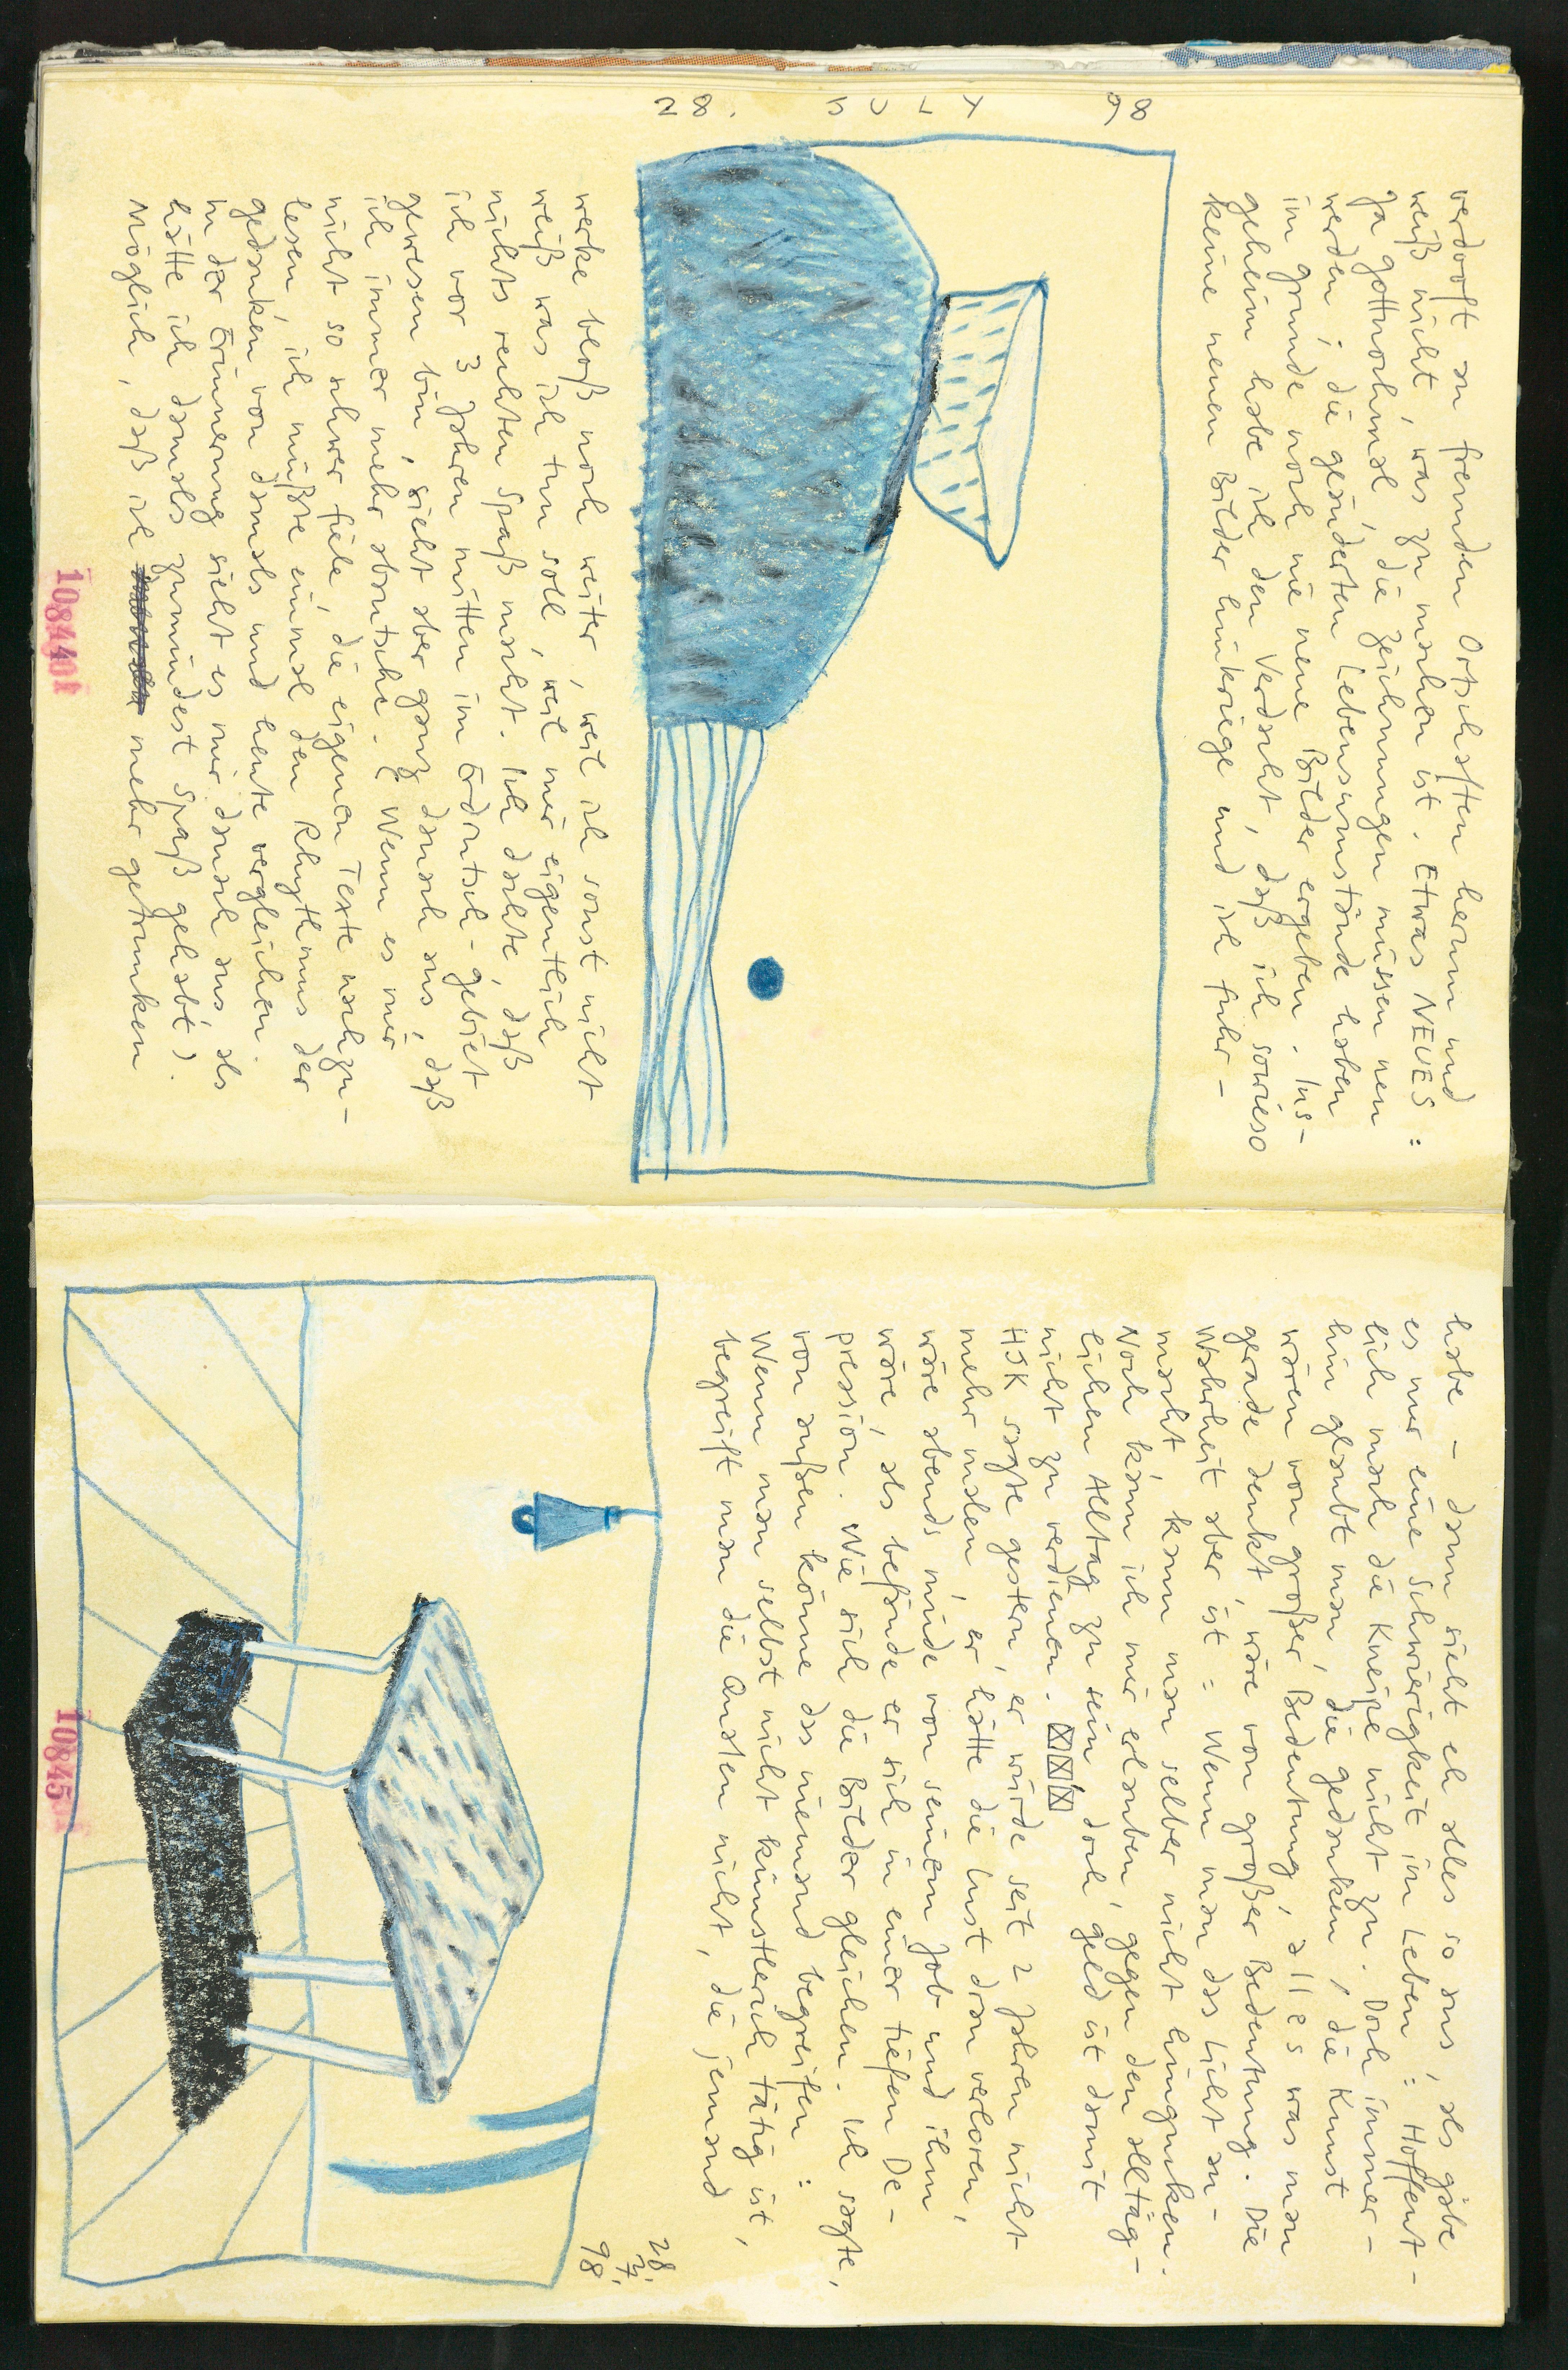 28. JULY 98
verdooft an fremden Ortschaften herum und
weiß nicht, was zu machen ist. Etwas NEUES:
Ja gottnochmal, die Zeichnungen müssen neu
werden; die geänderten Lebensumstände haben
im grunde noch nie neue Bilder ergeben. Ins-
geheim habe ich den Verdacht, daß ich sowieso
keine neuen Bilder hinkriege und ich fuhr-
werke bloß noch weiter, weil ich sonst nicht
weiß was ich tun soll, weil mir eigentlich
nichts rechten Spaß macht. Ich dachte, daß
ich vor 3 Jahren mitten im Erdrutsch-gebiet
gewesen bin, sieht aber ganz danach aus, daß
ich immer mehr abrutsche. (Wenn es mir
nicht so schwer fiele, die eigenen Texte nachzu-
lesen, ich müßte einmal den Rhythmus der
gedanken von damals und heute vergleichen.
In der Erinnerung sieht es mir danach aus, als
hätte ich damals zumindest Spaß gehabt).
Möglich, daß ich mehr getrunken
10844
habe - dann sieht eh alles so aus, als gäbe
es nur eine Schwierigkeit im Leben: Hoffent-
lich mach die Kneipe nicht zu. Doch immer-
hin glaubt man, die gedanken, die Kunst
wären von großer Bedeutung, alles was man
gerade denkt, wäre von großer Bedeutung. Die
Wahrheit aber ist: Wenn man das Licht an-
macht, kann man selber nicht hingucken.
Noch kann ich mir erlauben, gegen den alltäg-
lichen Alltag zu sein, doch geld ist damit
nicht zu verdienen. ☒☒☒
HJK sagte gestern, er würde seit 2 Jahren nicht
mehr malen, er hätte die Lust dran verloren,
wäre abends müde von seinem Job und ihm
wäre, als befände er sich in einer tiefen De-
pression. Wie sich die Bilder gleichen. Ich sagte,
von außen könne das niemand begreifen:
Wenn man selbst nicht künstlerich tätig ist,
begreift man die Qualen nicht, die jemand
28.
7.
98
10845